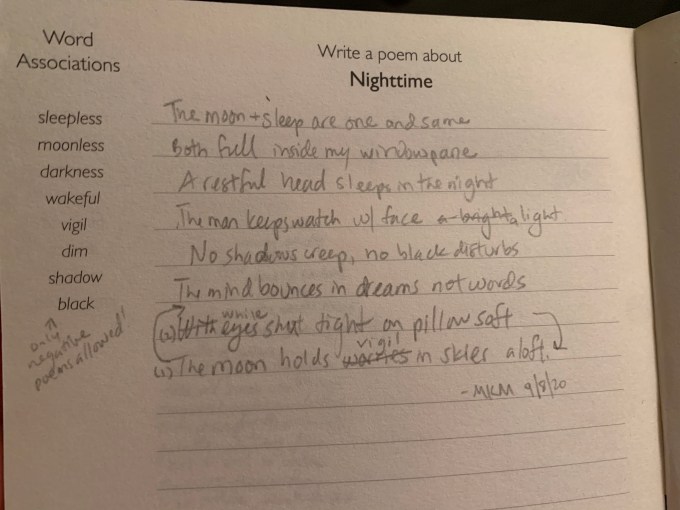 Word
Associations
sleepless
moonless
darkness
wakeful
vigil
dim
shadow
black
only
negative
poems allowed!
Write a poem about
Nighttime
The moon + sleep are one and same
Both full inside my windowpane
A restful head sleeps in the night
The man keeps watch w/ face a-bright, alight
No shadows creep, no black disturbs
The mind bounces in dreams not words
(2) With while eyes shut tight on pillow soft
(1) The moon holds worries vigil in skies aloft.
- MKM 9/8/20